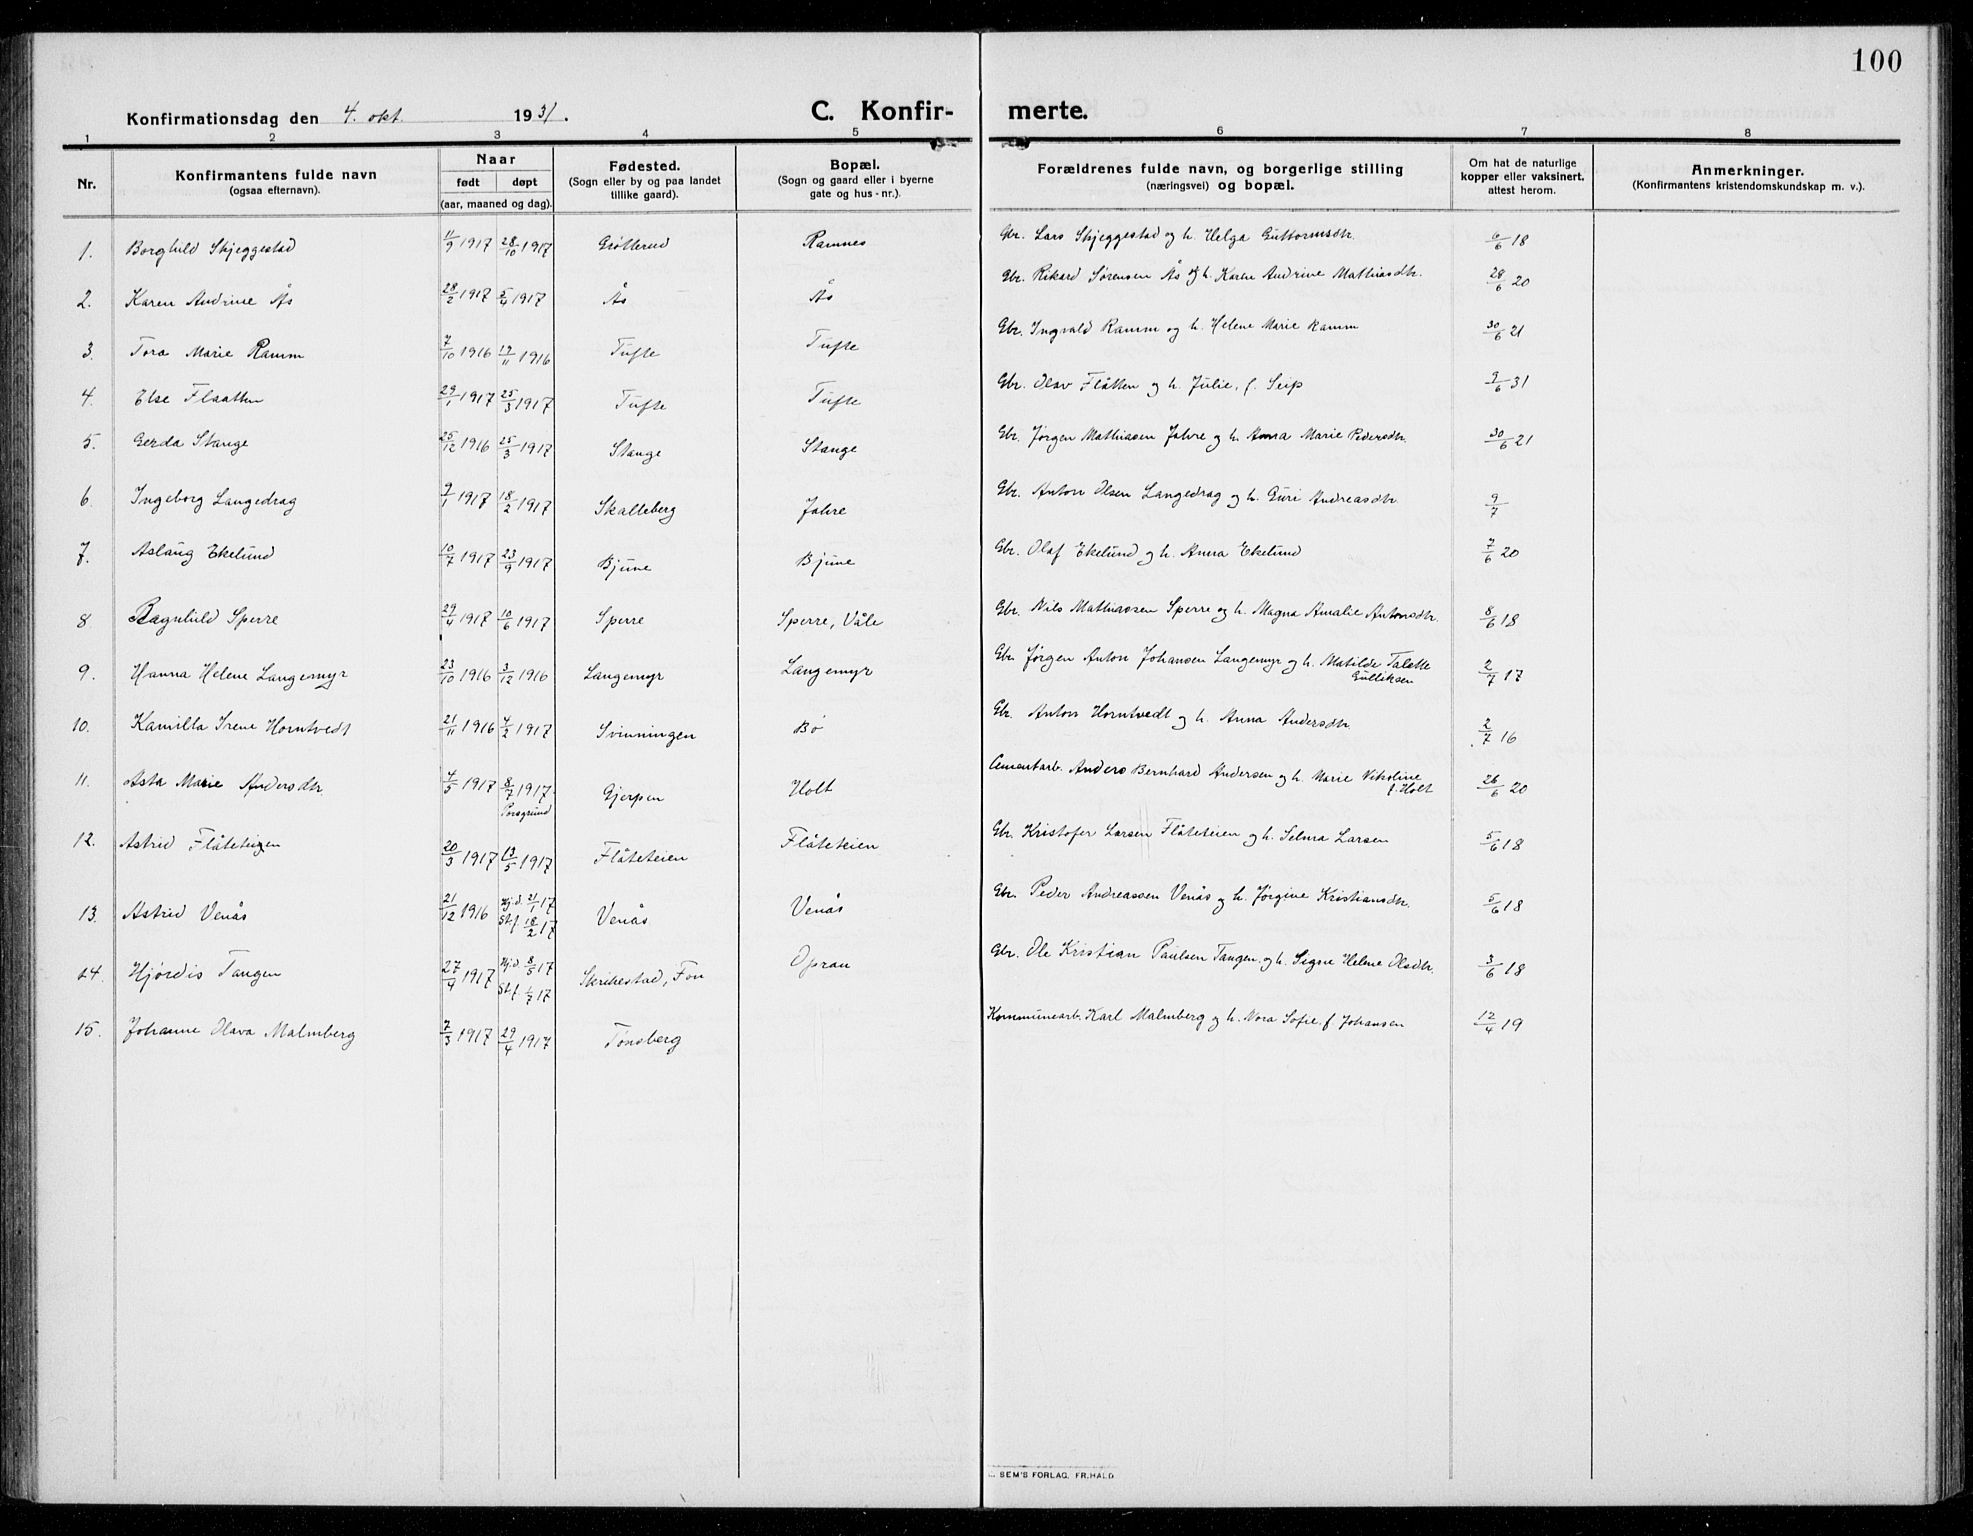 100
Konfirmationsdag den 4. okt. 1931.
C. Konfir-
merte.
1 2 3 4 5 6 7 8
Nr.
Konfirmantens fulde navn
(ogsaa efternavn).
Naar
født døpt
(aar, maaned og dag).
Fødested.
(Sogn eller by og paa landet
tillike gaard).
Bopæl.
(Sogn og gaard eller i byerne
gate og hus-nr.).
Forældrenes fulde navn, og borgerlige stilling
(næringsvei) og bopæl.
Om hat de naturlige
kopper eller vaksinert.
attest herom.
Anmerkninger.
(Konfirmantens kristendomskundskap m. v.).
1. Borghild Skjeggestad 11/9 1917 28/10 1917 Grøtterud Ramnes Gbr. Lars Skjeggestad og h. Helga Guttormsdtr. 6/6 18
2. Karen Andrine Ås 28/2 1917 5/4 1917 Ås Ås Gbr. Rikard Sørensen Ås og h. Karen Andrine Mathiasdtr. 28/6 20
3. Tora Marie Ramm 7/10 1916 19/11 1916 Tufte Tufte Gbr. Ingvald Ramm og h. Helene Marie Ramm 30/6 21
4. Else Flaatten 29/1 1917 25/3 1917 Tufte Tufte Gbr. Olav Flåtten og h. Julie, f. Seip 9/6 31
5. Gerda Stange 25/12 1916 25/3 1917 Stange Stange Gbr. Jørgen Mathiasen Jahre og h. Anna Marie Pedersdtr. 30/6 21
6. Ingeborg Langedrag 9/1 1917 18/2 1917 Skalleberg Jahre Gbr. Anton Olsen Langedrag og h. Guri Andreasdtr 9/7
7. Aslaug Ekelund 10/7 1917 23/9 1917 Bjune Bjune Gbr. Olaf Ekelund og h. Anna Ekelund 7/6 20
8 Ragnhild Sperre 29/4 1917 10/6 1917 Sperre Sperre, Våle Gbr. Nils Mathiassen Sperre og h. Magna Amalie Antonsdtr. 8/6 18
9. Hanna Helene Langemyr 23/10 1916 3/12 1916 Langemyr Langemyr Gbr. Jørgen Anton Johansen Langemyr og h. Matilde Talette
Gulliksen 2/7 17
10. Kamilla Irene Horntvedt 21/11 1916 4/2 1917 Svinningen Bø Gbr. Anton Horntvedt og h. Anna Andersdtr. 2/7 16
11. Asta Marie Andersdtr. 4/5 1917 8/7 1917 Gjerpen Holt Cementarb. Anders Bernhard Andersen og h. Marie Nikoline
Porsgrund f. Holt 26/6 20
12. Astrid Flåteteigen 20/3 1917 13/5 1917 Flåteteien Flåteteien Gbr. Kristofer Larsen Flåteteien og h. Selma Larsen 5/6 18
13. Astrid Venås 21/12 1916 Hj.d. 21/1 17 Venås Venås Gbr. Peder Andreassen Venås og h. Jørgine Kristiansdtr. 5/6 18
St.f. 18/2 17
14. Hjørdis Tangen 27/4 1917 Hj.d. 8/5 17 Skrikestad, Fon Opran Gbr. Ole Kristian Paulsen Tangen og h. Signe Helene Olsdtr. 3/6 18
St.f. 1/7 17
15. Johanne Olava Malmberg 7/3 1917 29/4 1917 Tønsberg Kommunearb. Karl Malmberg og h. Nora Sofie f. Johansen 12/4 19
SEM'S FORLAG, FR.HALD